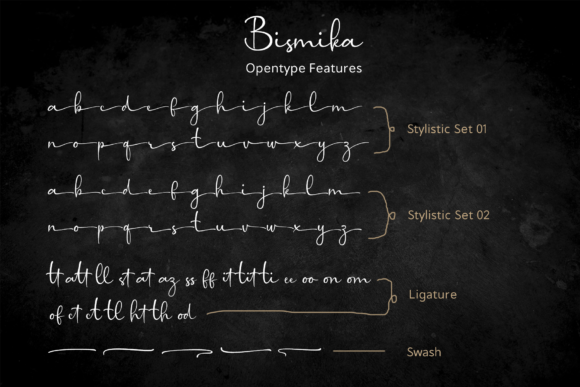 Bismika
Opentype Features
a b c d e f g h i j k l m
n o p q r s t u v w x y z
Stylistic Set 01
a b c d e f g h i j k l m
n o p q r s t u v w x y z
Stylistic Set 02
tt att ll st at az ss ff it lit ti ee oo on om
of et ett tl ht th od
Ligature
Swash